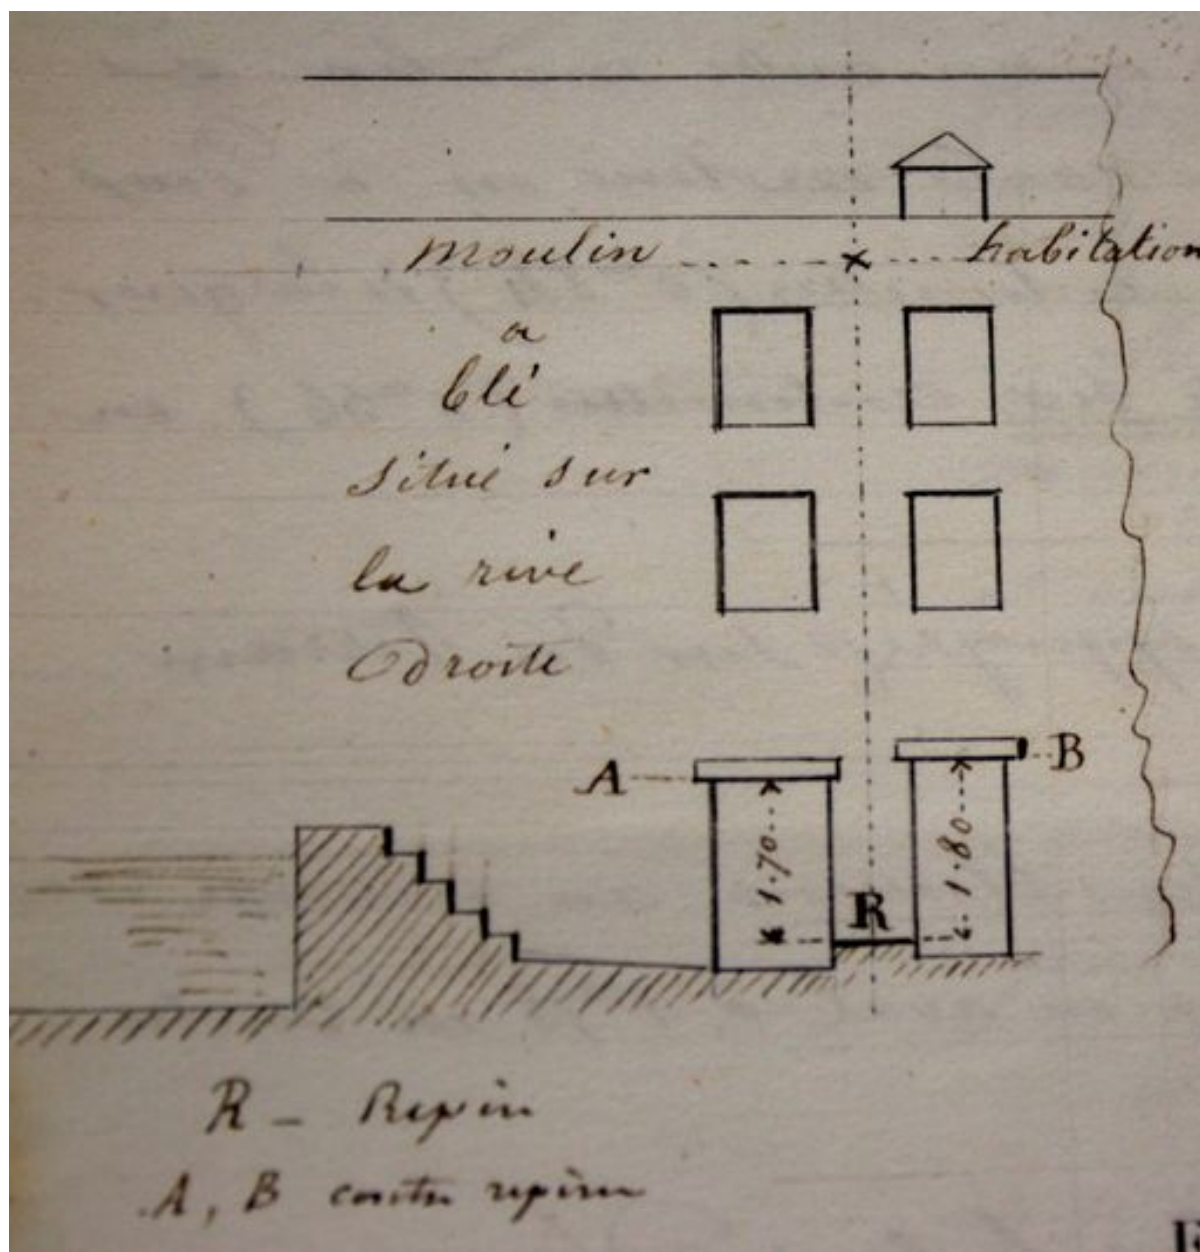 moulin habitation
a
blé
situé sur
la rive
droite
A B
1.70 1.80
R
R - Repèr
A, B contre repère